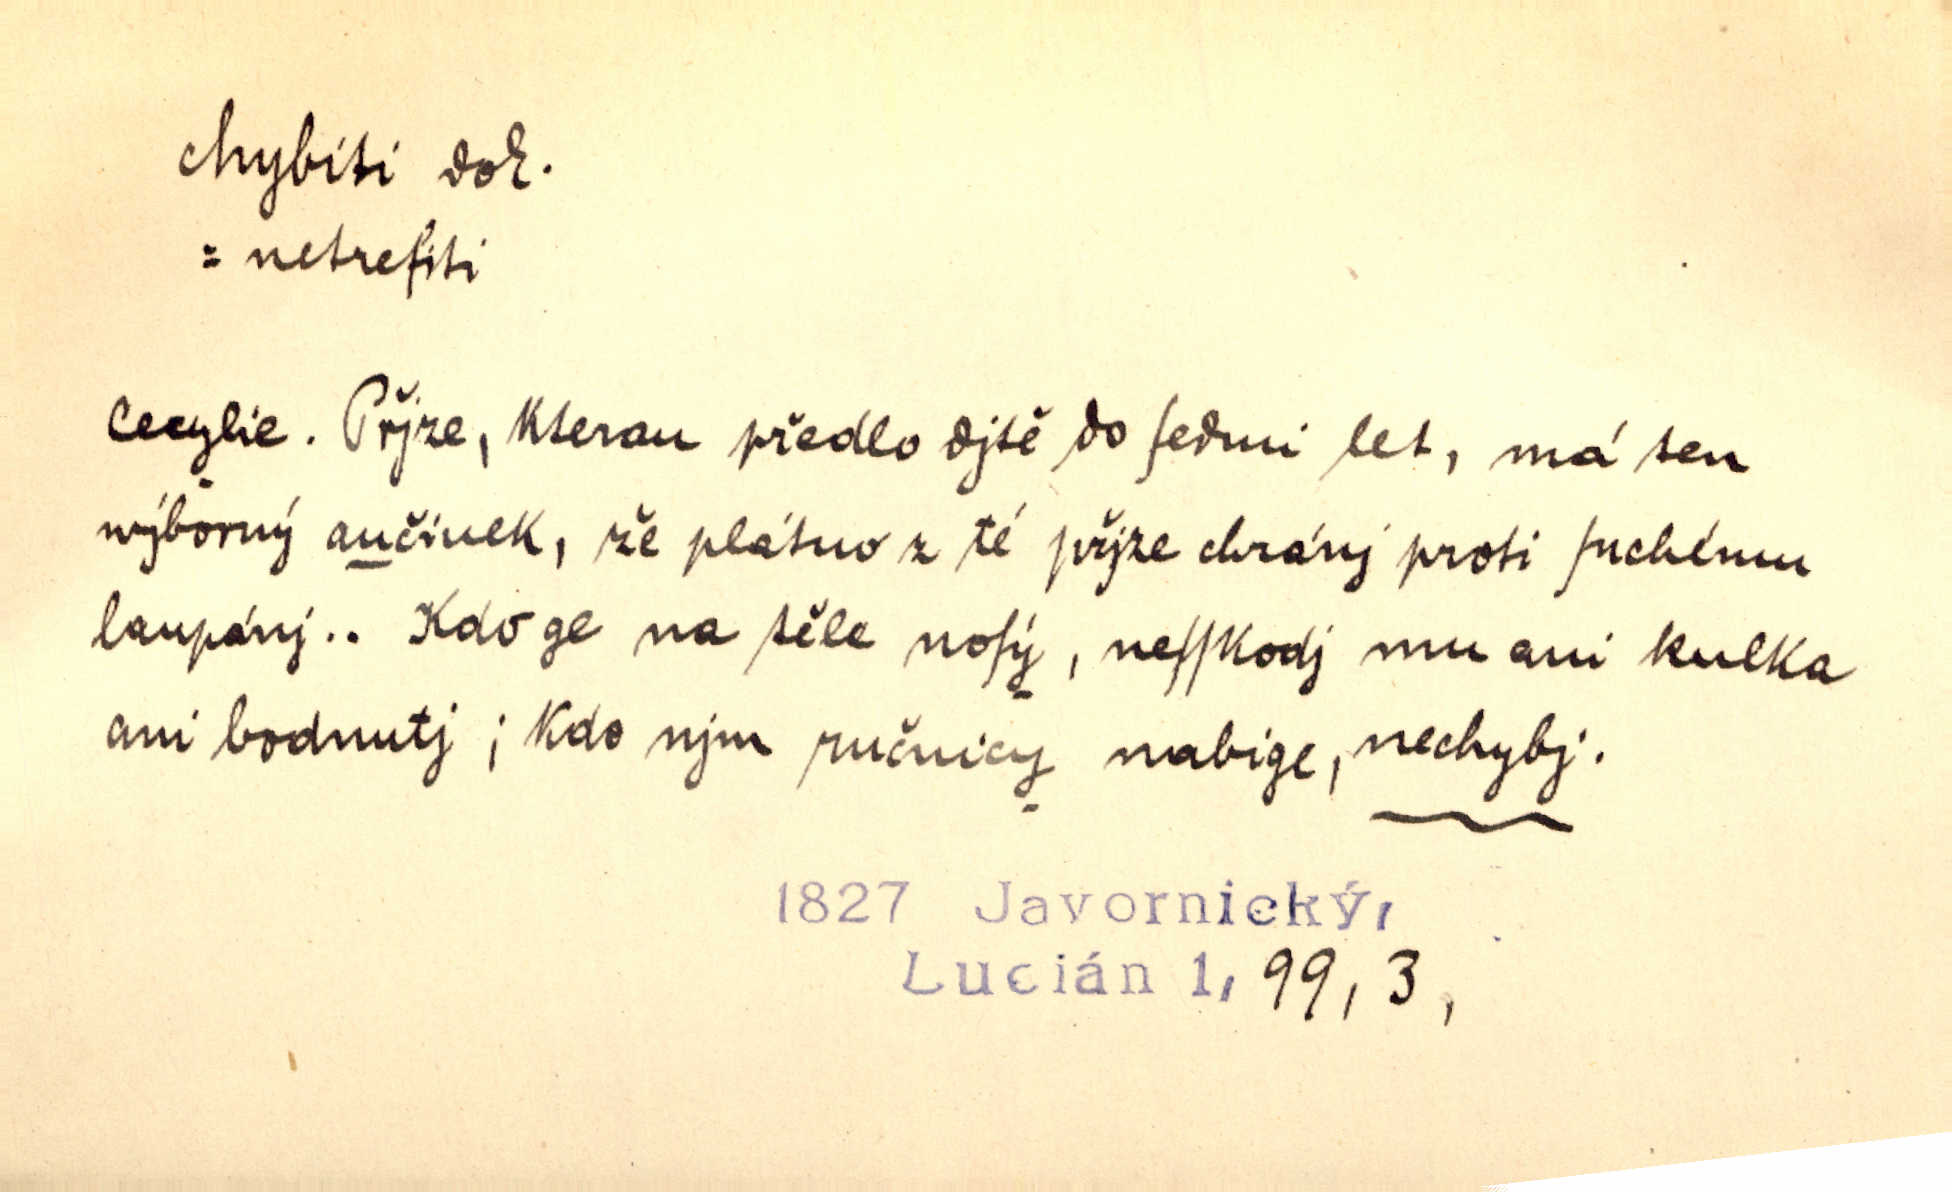 chybiti dok.
= netrefiti
Cecylie. Přjze, kterau předlo djtě do ſedmi let, má ten
wýborný aučinek, že plátno z té přjze chránj proti ſuchému
laupánj.. Kdo ge na těle noſý, neſſkodj mu ani kulka
ani bodnutj; kdo njm ručnicy nabige, nechybj.
1827 Javornický,
Lucián 1, 99, 3,